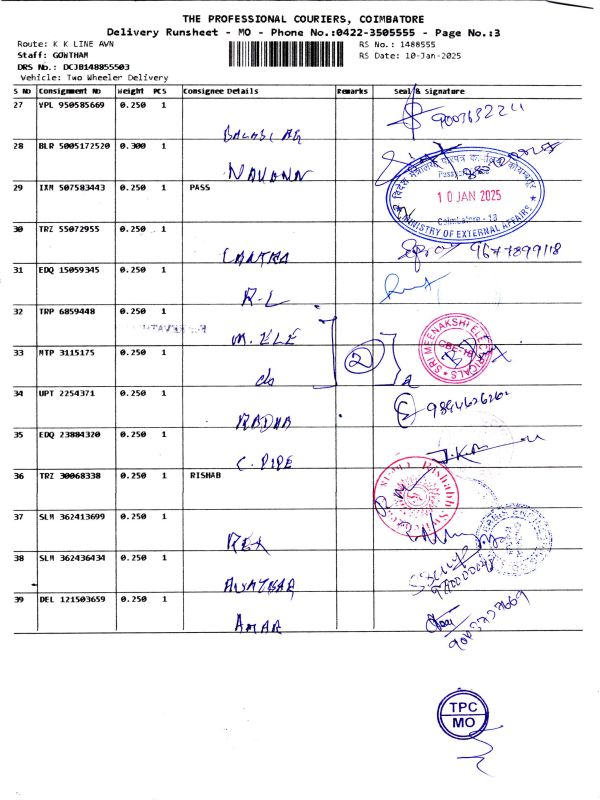 THE PROFESSIONAL COURIERS, COIMBATORE
Delivery Runsheet - MO - Phone No.:0422-3505555 - Page No.:3
Route: K K LINE AWN
RS No.: 1488555
Staff: GOWTHAM
RS Date: 10-Jan-2025
DRS No.: DCJB148855503
Vehicle: Two Wheeler Delivery
S No Consignment No Weight PCS Consignee Details Remarks Seal & Signature
27 VPL 950585669 0.250 1
28 BLR 5005172520 0.300 1
NAVANA
29 IXM 507583443 0.250 1 PASS
10 JAN 2025
Coimbatore - 18
MINISTRY OF EXTERNAL AFFAIRS
30 TRZ 55072955 0.250 1
9677899118
31 EDQ 15059345 0.250 1
R-L
32 TRP 6859448 0.250 1
M. ELE
SRI MEENAKSHI ELECTRICALS
CBE-18
33 MTP 3115175 0.250 1
do
2
34 UPT 2254371 0.250 1
RADHA
35 EDQ 23884320 0.250 1
C. PIPE
36 TRZ 30068338 0.250 1 RISHAB
37 SLM 362413699 0.250 1
REX
38 SLM 362436434 0.250 1
39 DEL 121503659 0.250 1
AMAR
TPC
MO